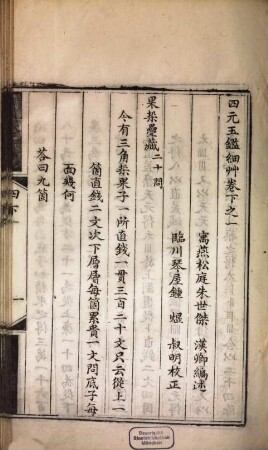 四元玉鑑細艸卷下之一
寓燕松庭朱世傑 漢卿編述
臨川琴屋鍾 煜 叔明校正
果垛疊藏二十問
今有三角垛果子一所直錢一貫三百二十文只云從上一
箇直錢二文次下層層每箇累貴一文問底子每
面幾何
荅曰九箇
Bayerische
Staatsbibliothek
München